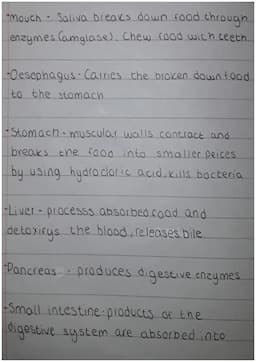 •Mouth - Saliva breaks down food through
enzymes (amglase). Chew food with teeth.
•Oesophagus - Carries the broken down food
to the stomach
•Stomach - muscular walls contract and
breaks the food into smaller peices
by using hydrocloric acid, kills bacteria
•Liver - processs absorbed food and
detoxifys the blood, releases bile.
•Pancreas - produces digestive enzymes
•Small intestine - products of the
digestive system are absorbed into